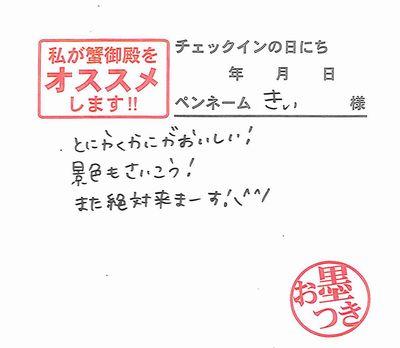 私が蟹御殿を
オススメ
します!!
チェックインの日にち
年 月 日
ペンネーム きぃ 様
とにかくかにがおいしい!
景色もさいこう!
また絶対来まーす!\^^/
お墨つき